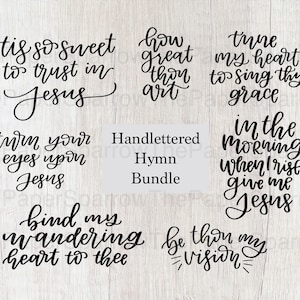 tis so sweet
to trust in
Jesus
how
great
thou
art
tune
my heart
to sing thy
grace
turn your
eyes upon
Jesus
Handlettered
Hymn
Bundle
in the
morning
when I rise
give me
Jesus
bind my
wandering
heart to thee
be thou my
vision